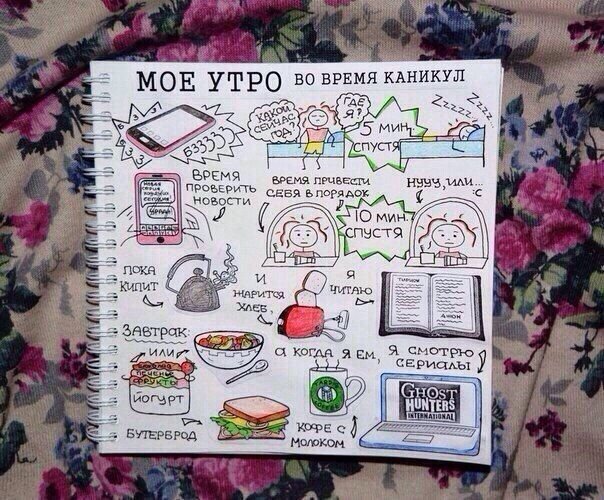 МОЕ УТРО ВО ВРЕМЯ КАНИКУЛ
БЗЗЗЗЗ
КАКОЙ
СЕЙЧАС
ГОД?
ГДЕ
Я?
5 МИН
СПУСТЯ
Zzzzz...
Zzzz...
НОВАЯ
СЕРИЯ
СЕГОДНЯ
УРАА!
ВРЕМЯ
ПРОВЕРИТЬ
НОВОСТИ
ВРЕМЯ ПРИВЕСТИ
СЕБЯ В ПОРЯДОК
10 МИН
СПУСТЯ
НУУУ, ИЛИ...
:С
ПОКА
КИПИТ
И
ЖАРИТСЯ
ХЛЕБ,
Я
ЧИТАЮ
ЗАВТРАК:
ИЛИ
ПЕЧЕНЬЕ
ФРУКТЫ
ЙОГУРТ
БУТЕРБРОД
А КОГДА Я ЕМ,
COFFEE
КОФЕ С
МОЛОКОМ
Я СМОТРЮ
СЕРИАЛЫ
GHOST
HUNTERS
INTERNATIONAL